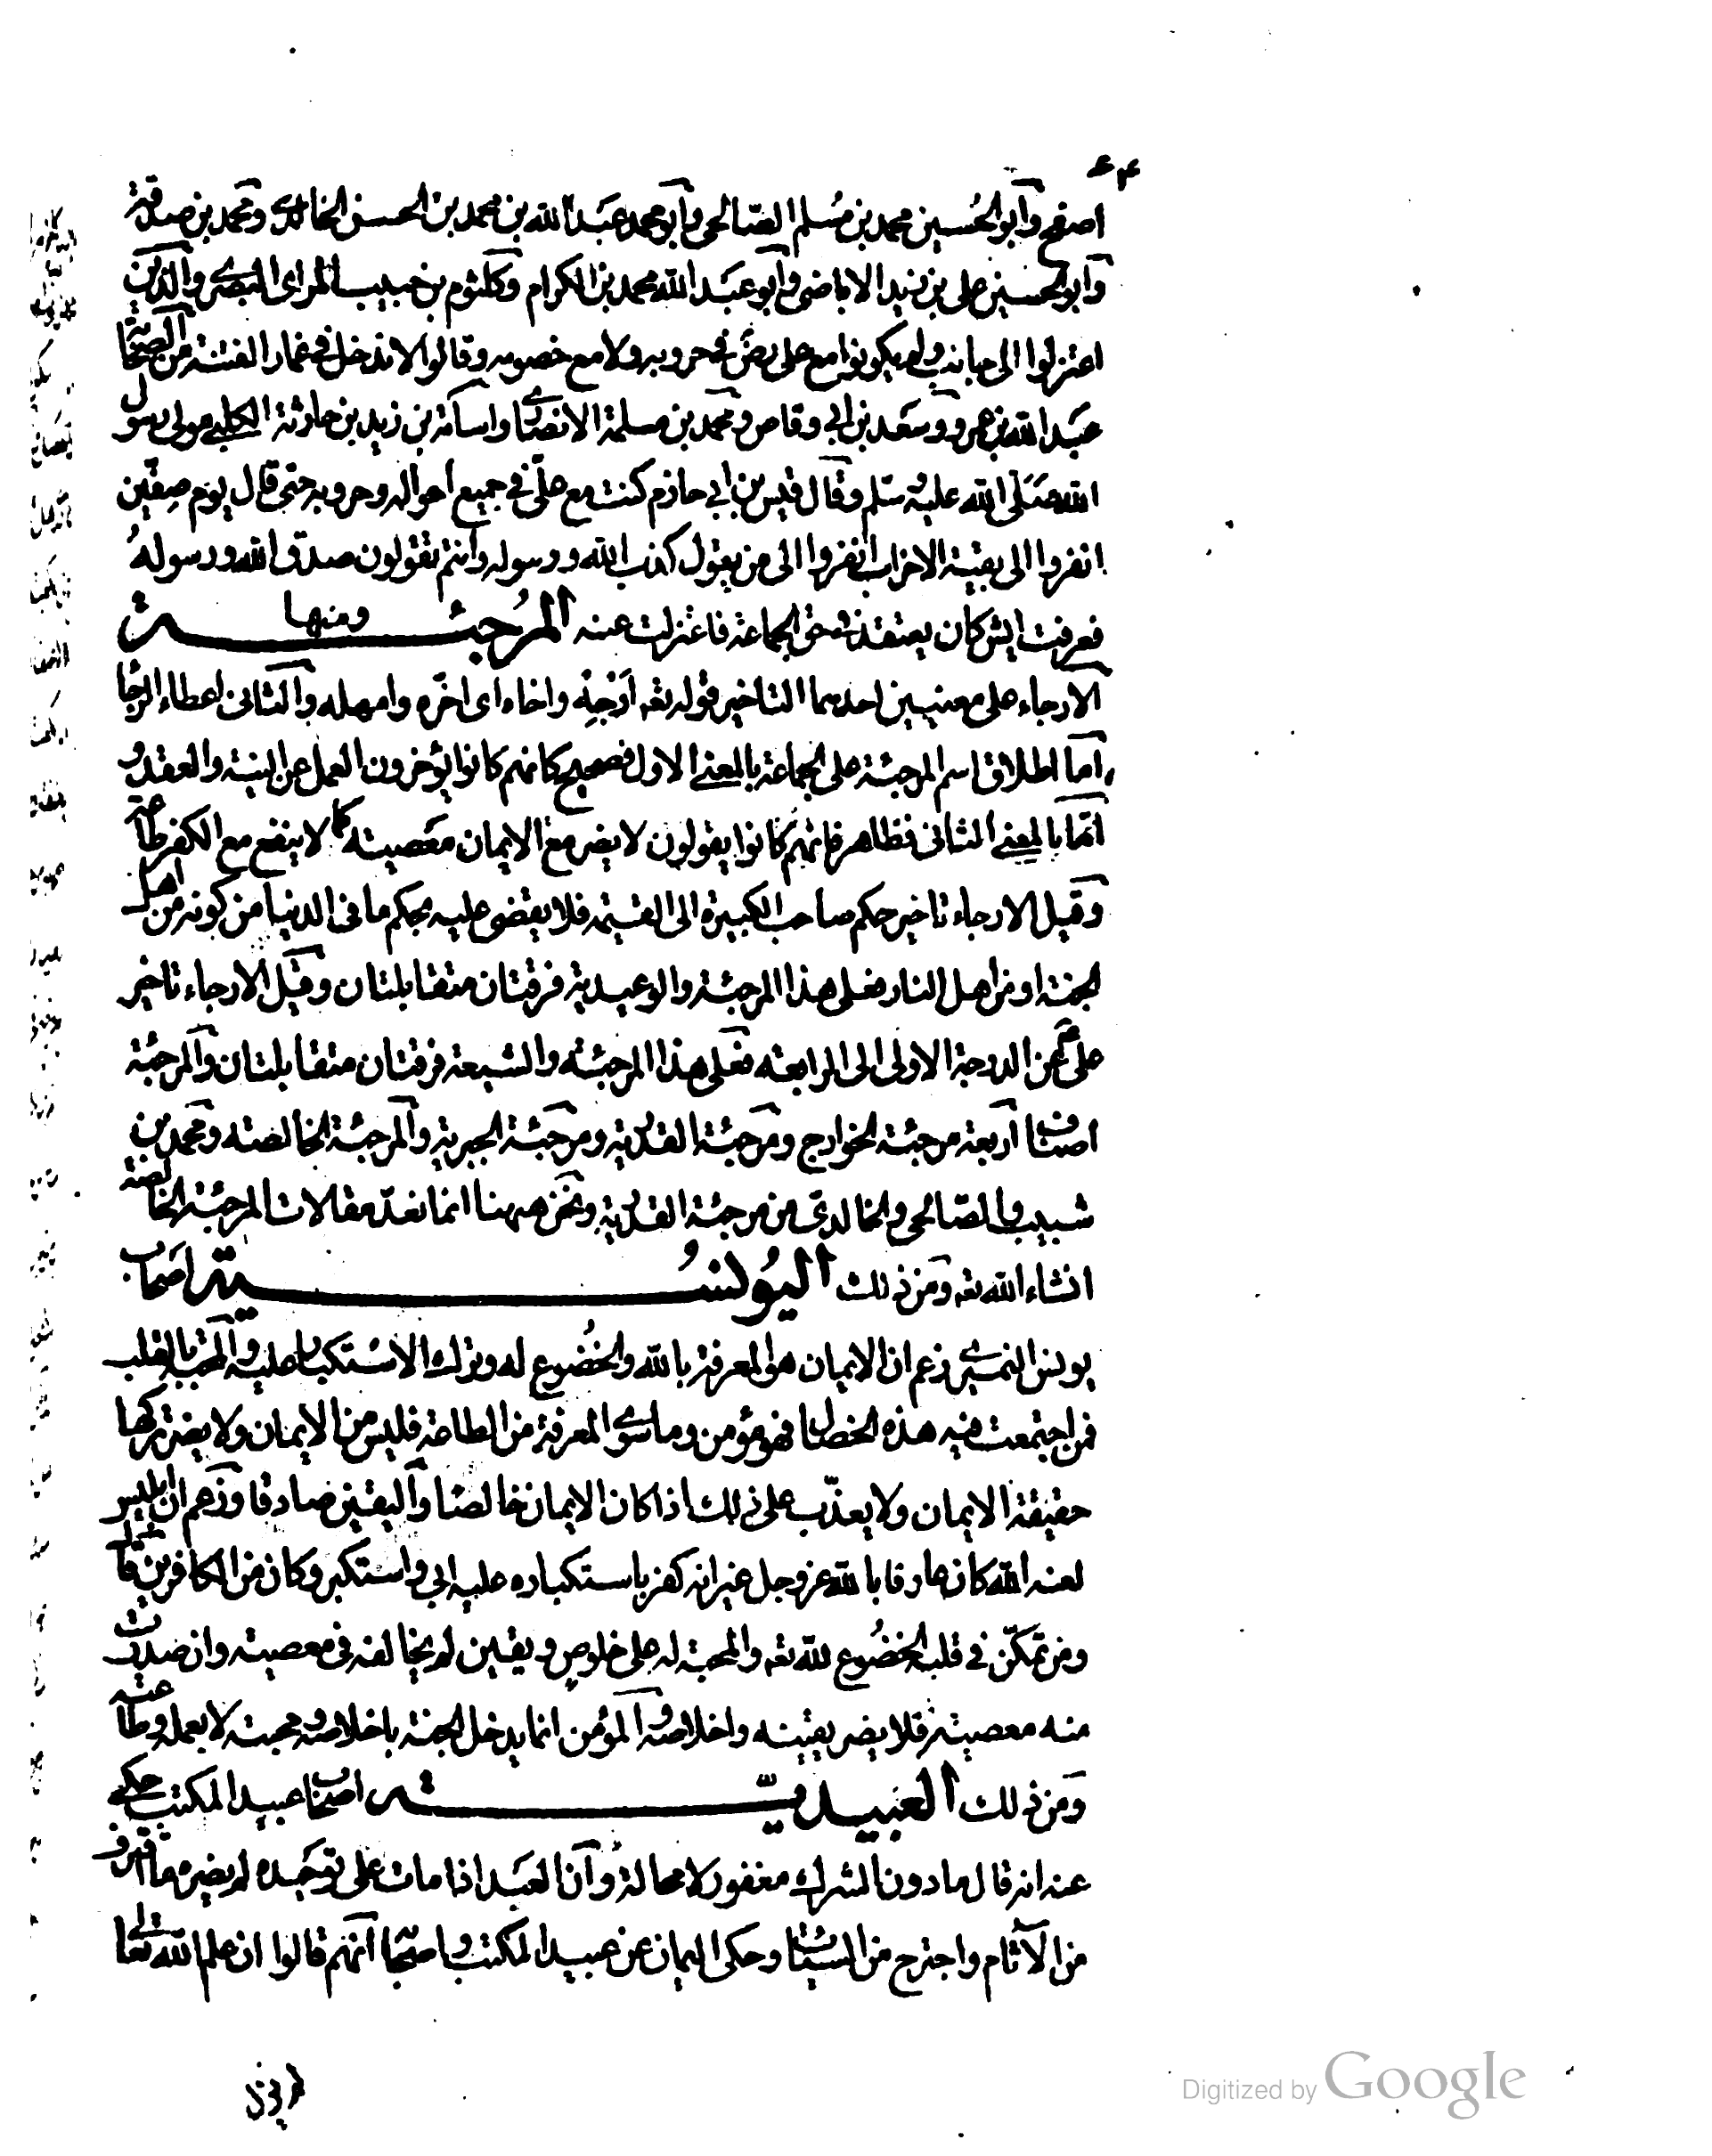 ٦٣
اصفح وابو الحسين محمد بن مسلم الصالحى وابو محمد عبد الله بن محمد بن الحسن الخالدى ومحمد بن صدقة
وابو الحسين على بن زيد الاباضى وابو عبد الله محمد بن الكرام وكلثوم بن حبيب المراى البصرى والذين
اعتزلوا الى جانب ولم يكونوا مع على رض فى حروبه ولا مع خصومه وقالوا لا ندخل فى غمار الفتنة من الصحابة
عبد الله بن عمرو وسعد بن ابى وقاص ومحمد بن مسلمة الانصارى واسامة بن زيد بن حارثة الكلبى مولى رسول
الله صلى الله عليه وسلم وقال قيس بن ابى حازم كنت مع على فى جميع احواله وحروبه حتى قال يوم صفين
انفروا الى بقية الاحزاب انفروا الى من يقول كذب الله ورسوله وانتم تقولون صدق الله ورسوله
فعرفت ايش كان يعتقد فى حق الجماعة فاعتزلت عنه ومنها المرجئة
الارجاء على معنيين احدهما التاخير قوله تعه ارجئه واخاه اى اخره وامهله والثانى اعطاء الرجا
اما اطلاق اسم المرجئة على الجماعة بالمعنى الاول فصحيح كانهم كانوا يؤخرون العمل عن النية والعقد و
اما بالمعنى الثانى فظاهر فانهم كانوا يقولون لا يضر مع الايمان معصيته كما لا ينفع مع الكفر طاعة
وقيل الارجاء تاخير حكم صاحب الكبيرة الى القيمة فلا يقضى عليه بحكم ما فى الدنيا من كونه من اهل
الجنة او من اهل النار فعلى هذا المرجئة والوعيدية فرقتان متقابلتان وقيل الارجاء تاخير
على عم عن الدرجة الاولى الى الرابعه فعلى هذا المرجئه والشيعة فرقتان متقابلتان والمرجئة
اصناف اربعة مرجئة الخوارج ومرجئة القدرية ومرجئة الجبرية والمرجئة الخالصه ومحمد بن
شبيب والصالحى والخالدى من مرجئة القدرية ونحن ههنا انما نعد مقالات المرجئة الخالصة
انشاء الله تعه ومن ذلك اليونسية اصحاب
يونس النميرى زعم ان الايمان هو المعرفة بالله والخضوع له وترك الاستكبار عليه والمحبة بالقلب
فمن اجتمعت فيه هذه الخصال فهو مؤمن وما سوى المعرفة من الطاعة فليس من الايمان ولا يضر تركها
حقيقة الايمان ولا يعذب على ذلك اذا كان الايمان خالصا واليقين صادقا وزعم ان ابليس
لعنه الله كان عارفا بالله عز وجل غير انه كفر باستكباره عليه ابى واستكبر وكان من الكافرين قال
ومن تمكن فى قلبه الخضوع لله تعه والمحبة له على خلوص ويقين لم يخالفه فى معصيته وان صدرت
منه معصية فلا يضر يقينه واخلاصه والمؤمن انما يدخل الجنة باخلاصه ومحبته لا بعمله وطاعته
ومن ذلك العبيدية اصحاب عبيد المكتب حكى
عنه انه قال ما دون الشرك مغفور لا محالة وان العبد اذا مات على توحيده لم يضره ما اقترف
من الآثام واجترح من السيئات وحكى اليمان عن عبيد المكتب واصحابه انهم قالوا ان علم الله تعالى
Digitized by Google